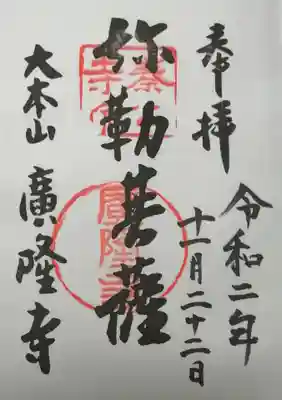 奉拝
令和二年
十一月二十二日
弥勒菩薩
大本山 廣隆寺